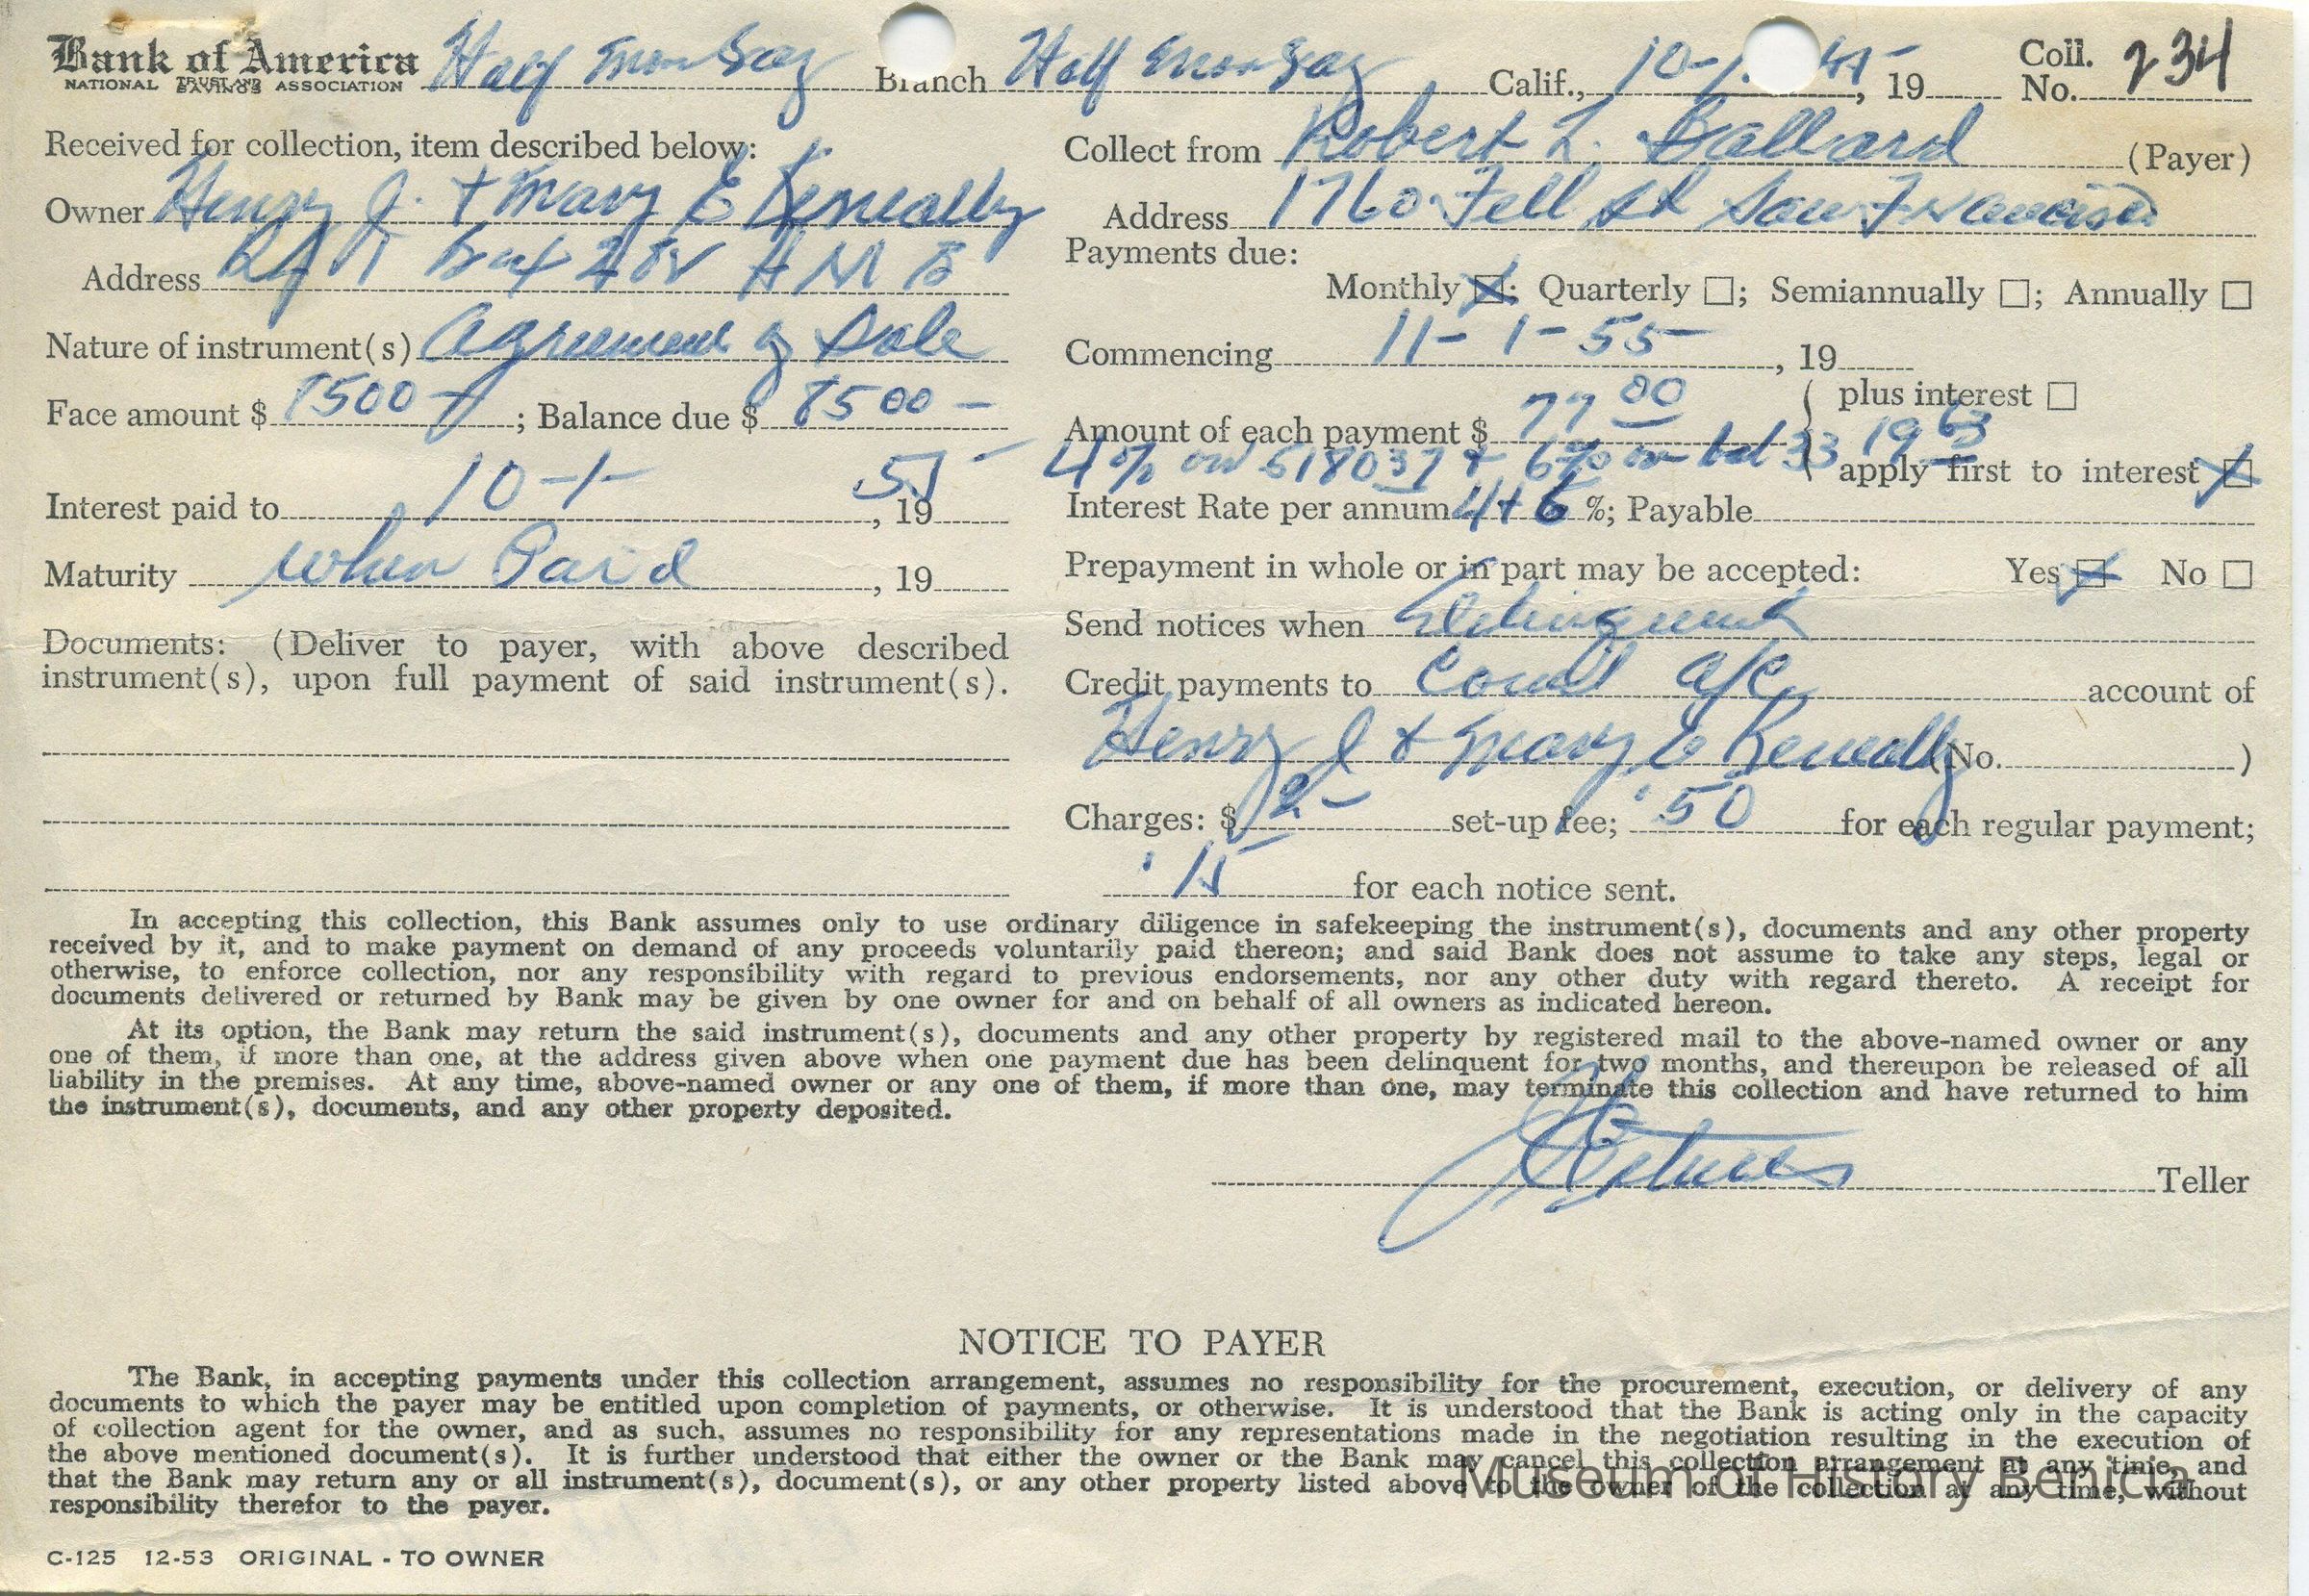 Bank of America Half Moon Bay Branch Half Moon Bay Calif., 10-1- , 19 Coll. No. 234
NATIONAL TRUST AND SAVINGS ASSOCIATION
Received for collection, item described below:
Owner Henry J. + Mary E Keneally
Address Rf 1 Box 28V H M B
Nature of instrument(s) Agreement of Sale
Face amount $ 8500 - ; Balance due $ 8500 -
Interest paid to 10-1- 55 , 19
Maturity when Paid , 19
Documents: (Deliver to payer, with above described
instrument(s), upon full payment of said instrument(s).
Collect from Robert L. Ballard (Payer)
Address 1760 Fell St San Francisco
Payments due:
Monthly ☒; Quarterly ☐; Semiannually ☐; Annually ☐
Commencing 11-1-55 , 19
Amount of each payment $ 77 00 plus interest ☐
4% on 518037 + 6% on bal 33 19 63 apply first to interest ☒
Interest Rate per annum 4+6 %; Payable
Prepayment in whole or in part may be accepted: Yes ☒ No ☐
Send notices when Delinquent
Credit payments to Coml a/c account of
Henry J + Mary E Keneally (No. )
Charges: $ 2- set-up fee; .50 for each regular payment;
.15 for each notice sent.
In accepting this collection, this Bank assumes only to use ordinary diligence in safekeeping the instrument(s), documents and any other property
received by it, and to make payment on demand of any proceeds voluntarily paid thereon; and said Bank does not assume to take any steps, legal or
otherwise, to enforce collection, nor any responsibility with regard to previous endorsements, nor any other duty with regard thereto. A receipt for
documents delivered or returned by Bank may be given by one owner for and on behalf of all owners as indicated hereon.
At its option, the Bank may return the said instrument(s), documents and any other property by registered mail to the above-named owner or any
one of them, if more than one, at the address given above when one payment due has been delinquent for two months, and thereupon be released of all
liability in the premises. At any time, above-named owner or any one of them, if more than one, may terminate this collection and have returned to him
the instrument(s), documents, and any other property deposited.
Teller
NOTICE TO PAYER
The Bank, in accepting payments under this collection arrangement, assumes no responsibility for the procurement, execution, or delivery of any
documents to which the payer may be entitled upon completion of payments, or otherwise. It is understood that the Bank is acting only in the capacity
of collection agent for the owner, and as such, assumes no responsibility for any representations made in the negotiation resulting in the execution of
the above mentioned document(s). It is further understood that either the owner or the Bank may cancel this collection arrangement at any time, and
that the Bank may return any or all instrument(s), document(s), or any other property listed above to the owner of the collection at any time, without
responsibility therefor to the payer.
Museum of History Benicia
C-125 12-53 ORIGINAL - TO OWNER